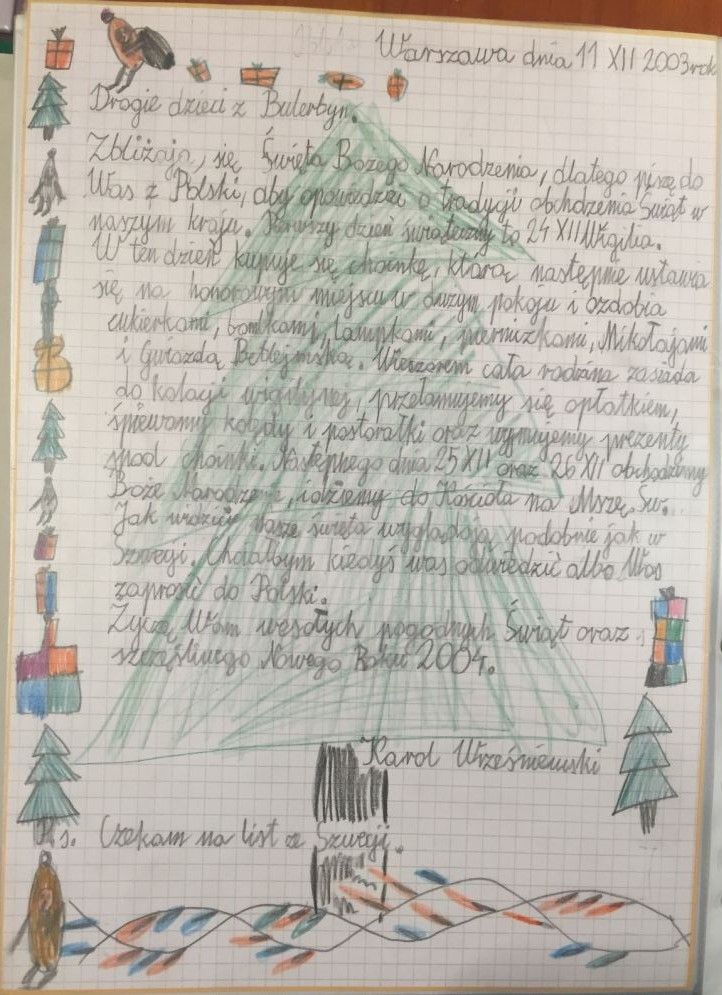 Warszawa dnia 11 XII 2003 rok
Drogie dzieci z Bulerbyn.
Zbliżają się Święta Bożego Narodzenia, dlatego piszę do
Was z Polski, aby opowiedzieć o tradycji obchdzenia Świąt w
naszym kraju. Pierwszy dzień świąteczny to 24 XII Wigilia.
W ten dzień kupuje się choinkę, którą następnie ustawia
się na honorowym miejscu w dużym pokoju i ozdobia
cukierkami, bombkami, lampkami, pierniczkami, Mikołajami
i Gwiazdą Betlejmską. Wieczorem cała rodzina zasiada
do kolacji wigilijnej, przełamujemy się opłatkiem,
śpiewamy kolędy i pastorałki oraz wyjmujemy prezenty
spod choinki. Następnego dnia 25 XII oraz 26 XI obchodzimy
Boże Narodzenie, idziemy do Kościoła na Mszę Św.
Jak widzicie nasze święta wyglądają podobnie jak w
Szwegi. Chciałbym kiedyś was odwiedzić albo Was
zaprosić do Polski.
Życzę Wam wesołych pogodnych Świąt oraz
szczęśliwego Nowego Roku 2004.
Karol Wrześniewski
Ps. Czekam na list ze Szwegi.